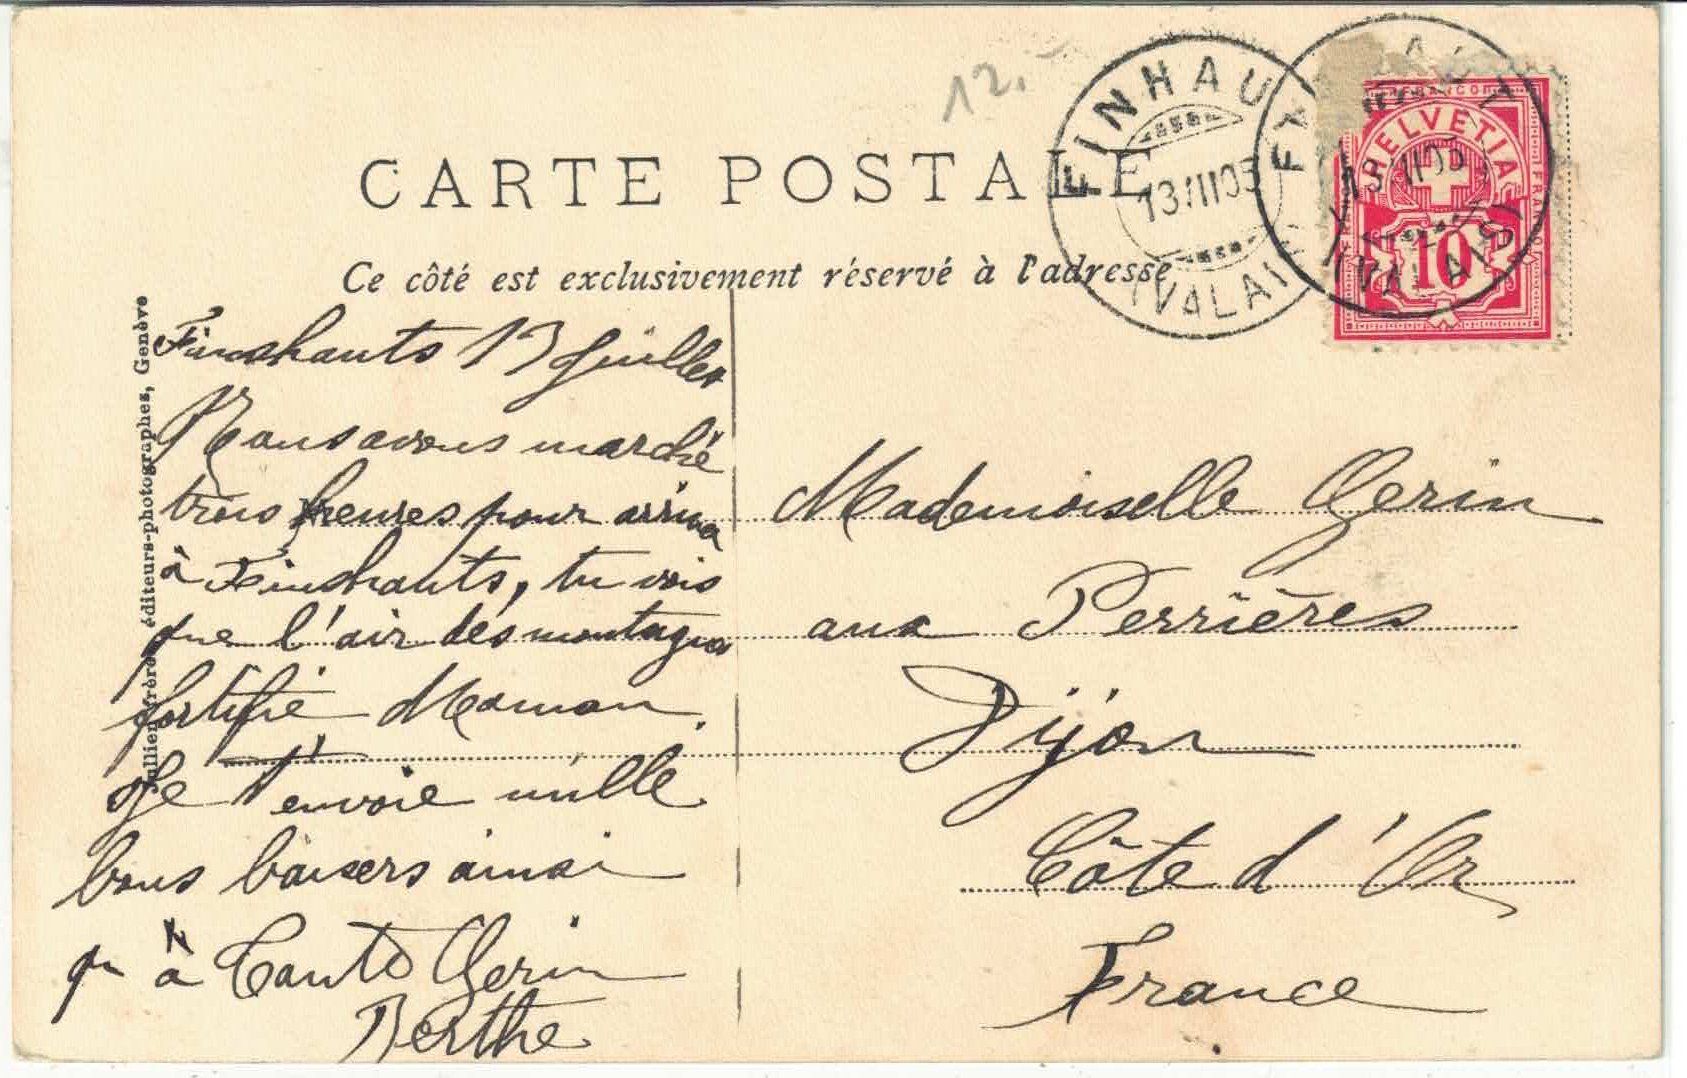 12.
CARTE POSTALE
Ce côté est exclusivement réservé à l'adresse
FINHAUT
13 VII 05
(VALAIS)
FINHAUT
13 VII 05
(VALAIS)
FRANCO
HELVETIA
10
Jullien frères, éditeurs-photographes, Genève
Finshauts 13 Juillet
Nous avons marché
trois heures pour arriver
à Finshauts, tu vois
que l'air des montagnes
fortifie Maman.
Je t'envoie mille
bons baisers ainsi
qu'à Tante Gerin
Berthe
Mademoiselle Gerin
aux Perrières
Dijon
Côte d'Or
France